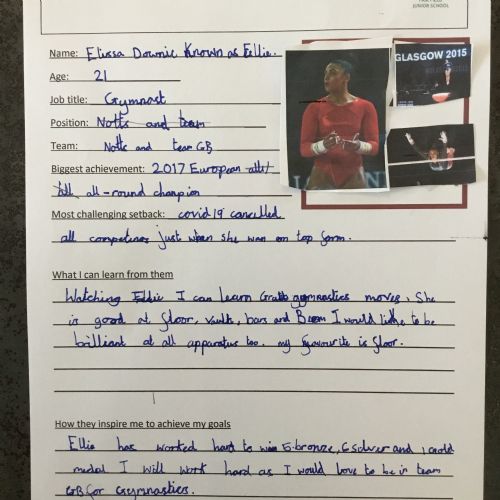 JUNIOR SCHOOL
Name: Elissa Downie Known as Ellie.
GLASGOW 2015
Age: 21
Job title: Gymnast
Position: Notts and team
Team: Notts and team GB
Biggest achievement: 2017 European all
all-round champion
Most challenging setback: covid 19 cancelled
all competions just when she was on top form.
What I can learn from them
Watching Ellie I can learn gymnastics moves, She
is good at floor, vault, bars and Beam I would like to be
brilliant at all apparatus too. my favourite is floor.
How they inspire me to achieve my goals
Ellie has worked hard to win 5 bronze, 6 silver and 1 gold
medal I will work hard as I would love to be in team
GB for Gymnastics.